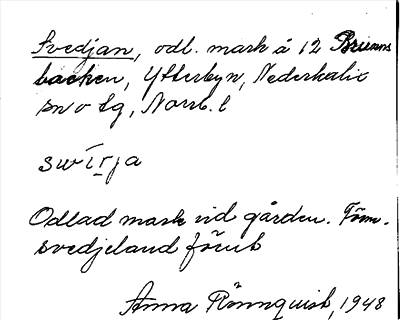 Svedjan, odl. mark å 12 Brunns
backen, Ytterbyn, Nederkalix
sn o tg, Norrb. l
Odlad mark vid gården. Före.
svedjeland förut
Anna Rönnquist, 1948